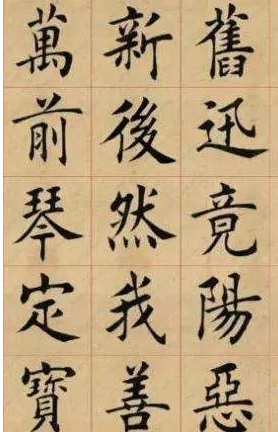 萬新舊
前後迅
琴然竟
定我陽
寶善惡